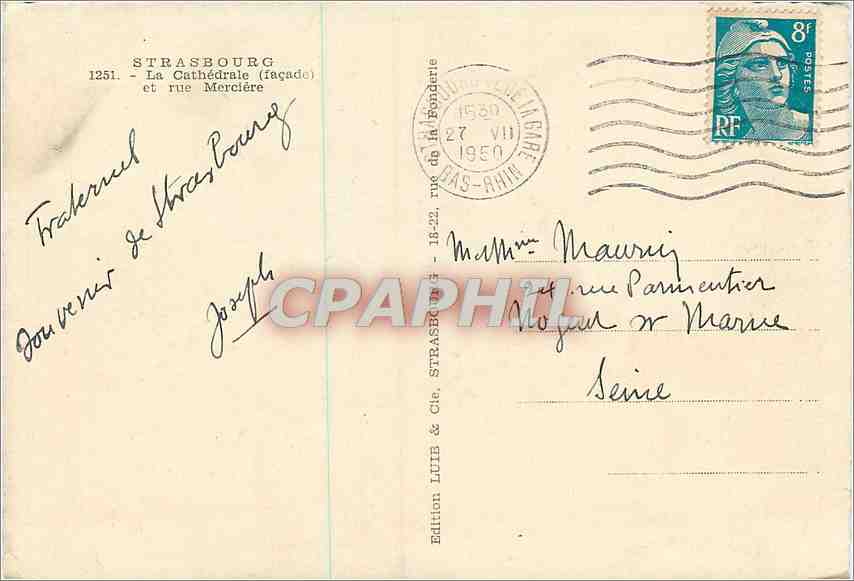 STRASBOURG
1251. - La Cathédrale (façade)
et rue Mercière
Fraternel
souvenir de Strasbourg
Joseph
Edition LUIB & Cie, STRASBOURG - 18-22, rue de la Fonderie
LA GARE
1530
27 VII
1950
BAS-RHIN
8F
POSTES
RF
CPAPHIL
rue Parmentier
Nogent sr Marne
Seine